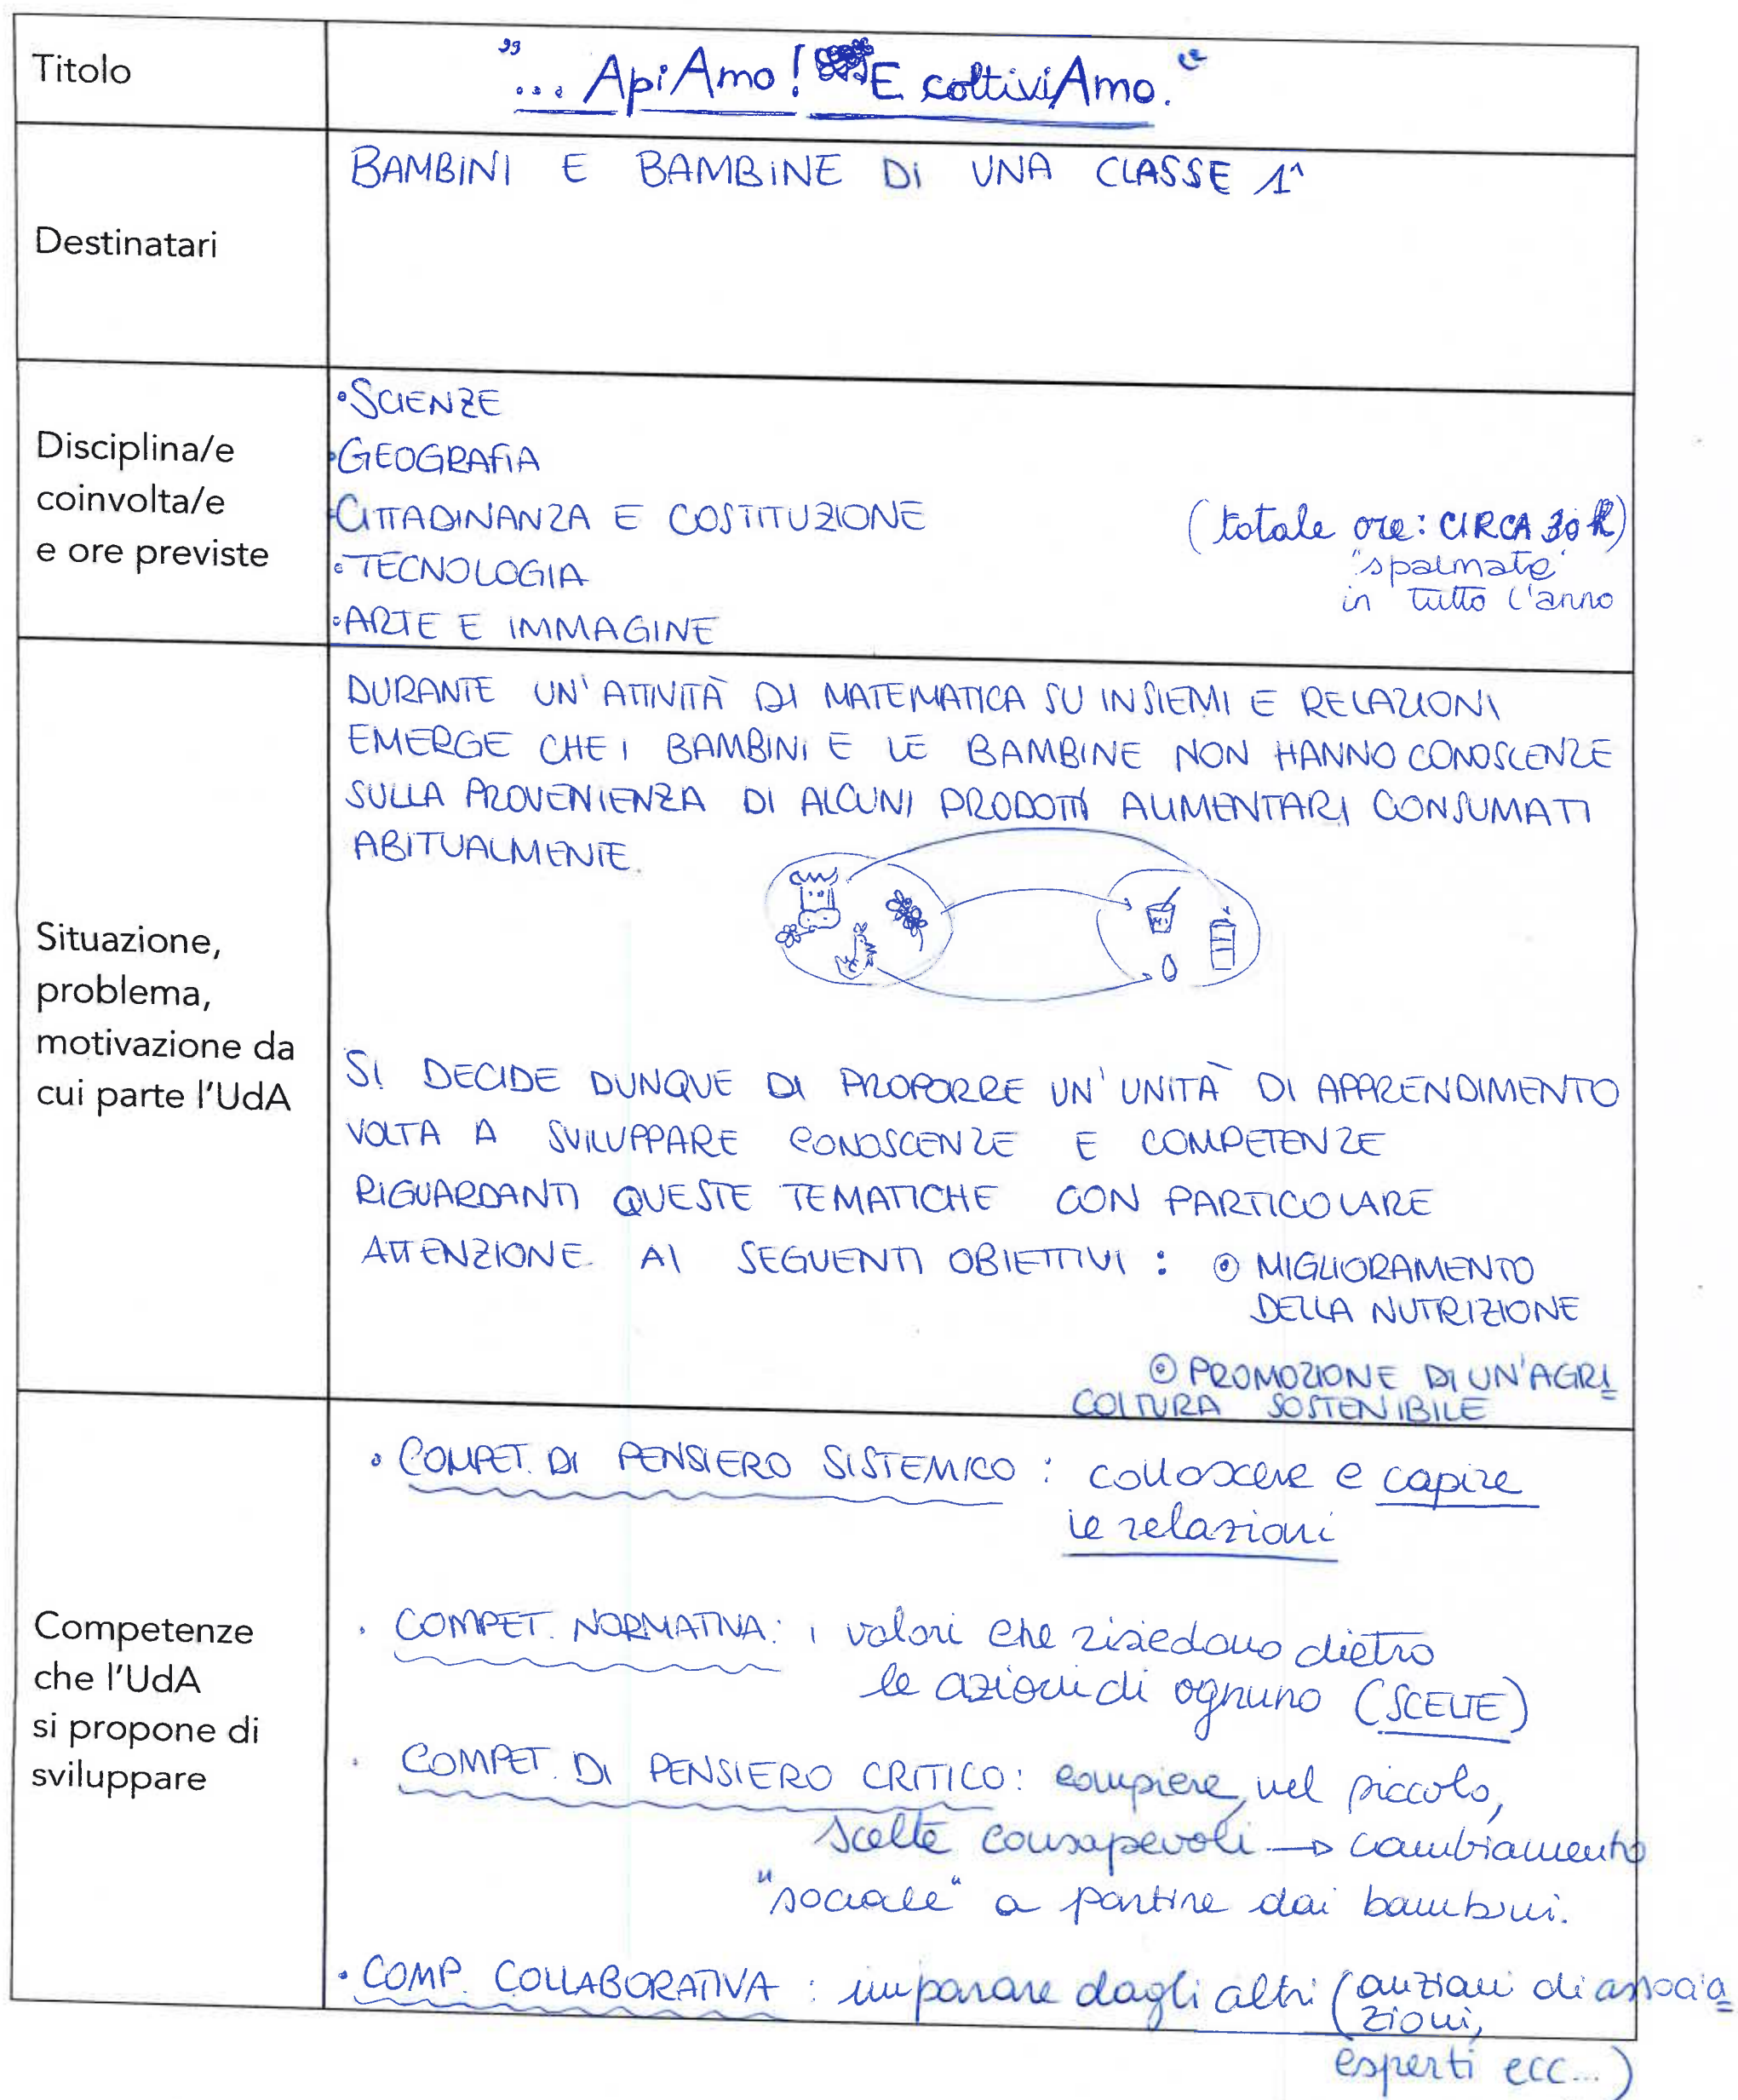 Titolo
"... ApiAmo! E coltiviAmo."
Destinatari
BAMBINI E BAMBINE DI UNA CLASSE 1^
Disciplina/e
coinvolta/e
e ore previste
•SCIENZE
•GEOGRAFIA
•CITTADINANZA E COSTITUZIONE
•TECNOLOGIA
•ARTE E IMMAGINE
(totale ore: CIRCA 30 h)
"spalmate"
in tutto l'anno
Situazione,
problema,
motivazione da
cui parte l'UdA
DURANTE UN'ATTIVITÀ DI MATEMATICA SU INSIEMI E RELAZIONI
EMERGE CHE I BAMBINI E LE BAMBINE NON HANNO CONOSCENZE
SULLA PROVENIENZA DI ALCUNI PRODOTTI ALIMENTARI CONSUMATI
ABITUALMENTE.
SI DECIDE DUNQUE DI PROPORRE UN'UNITÀ DI APPRENDIMENTO
VOLTA A SVILUPPARE CONOSCENZE E COMPETENZE
RIGUARDANTI QUESTE TEMATICHE CON PARTICOLARE
ATTENZIONE AI SEGUENTI OBIETTIVI: ⊙ MIGLIORAMENTO
DELLA NUTRIZIONE
⊙ PROMOZIONE DI UN'AGRI
COLTURA SOSTENIBILE
Competenze
che l'UdA
si propone di
sviluppare
• COMPET. DI PENSIERO SISTEMICO: conoscere e capire
le relazioni
• COMPET. NORMATIVA: i valori che risiedono dietro
le azioni di ognuno (SCELTE)
• COMPET. DI PENSIERO CRITICO: compiere, nel piccolo,
scelte consapevoli → cambiamento
"sociale" a partire dai bambini.
• COMP. COLLABORATIVA: imparare dagli altri (anziani di associa
zioni,
esperti ecc...)